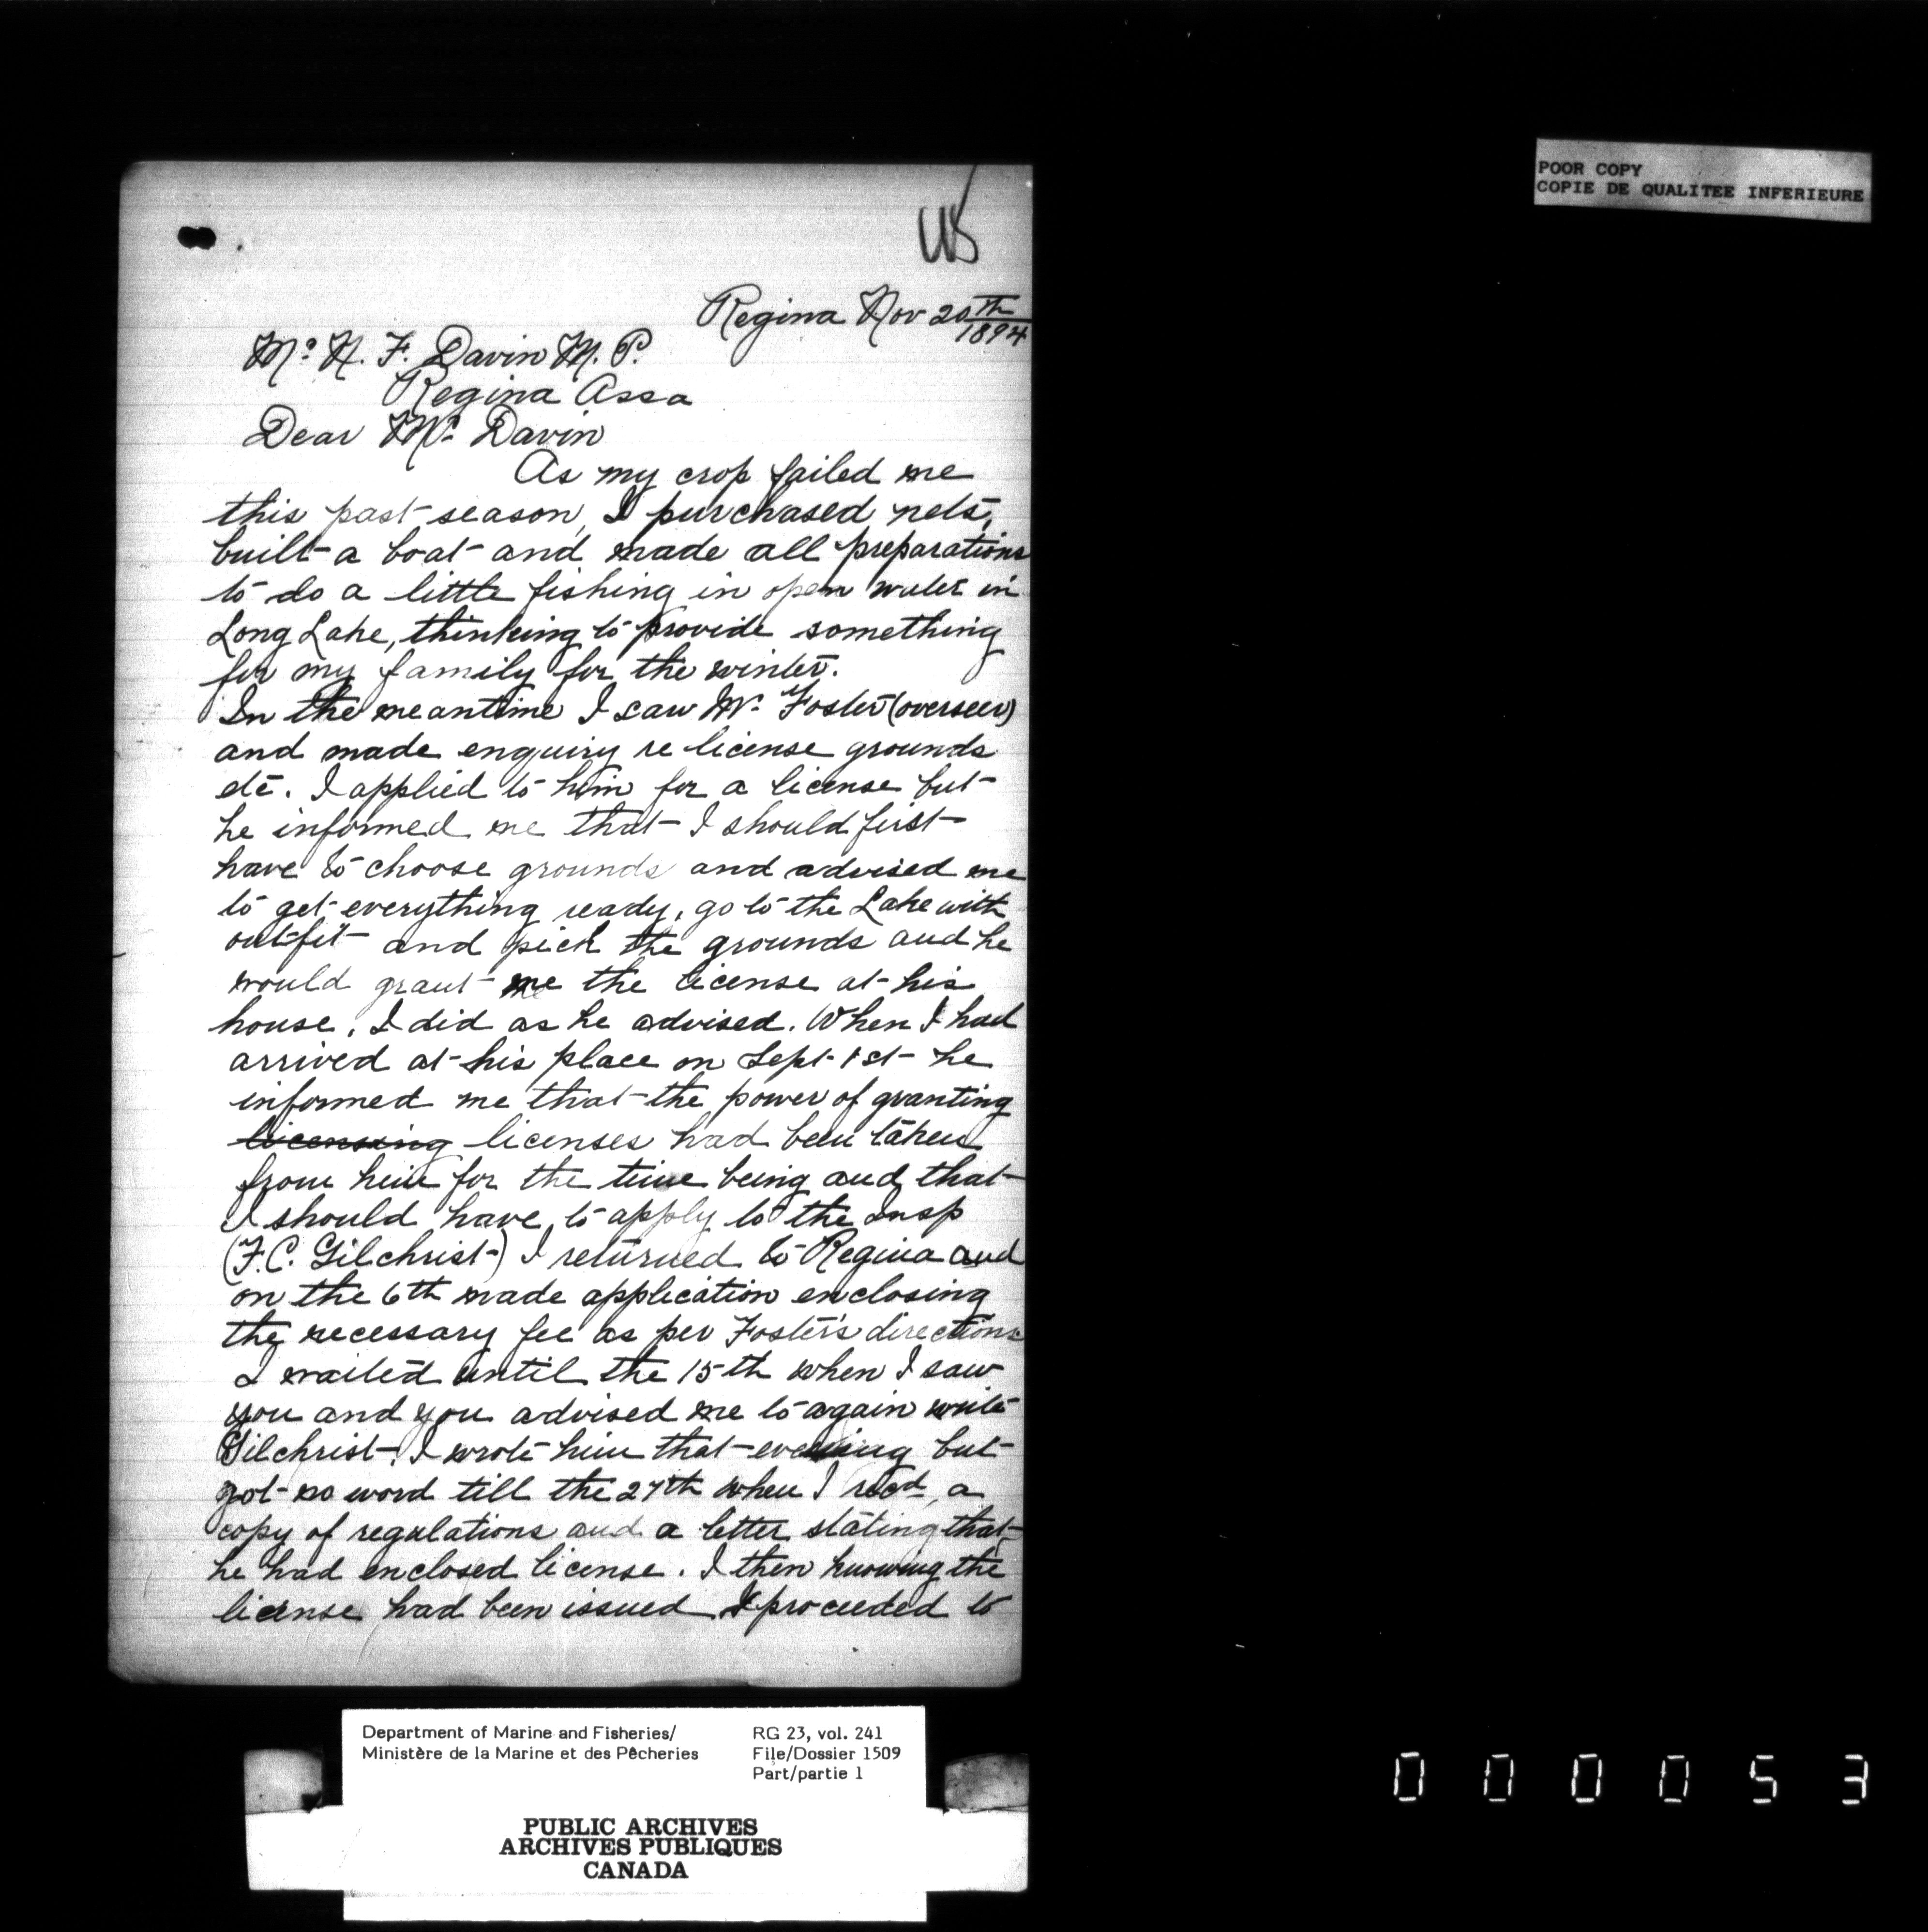 POOR COPY
COPIE DE QUALITEE INFERIEURE
Regina Nov 20th
1894
Mr. N. F. Davin M. P.
Regina Assa
Dear Mr. Davin
As my crop failed me
this past season, I purchased nets,
built a boat and made all preparations
to do a little fishing in open water in
Long Lake, thinking to provide something
for my family for the winter.
In the meantime I saw Mr. Foster (overseer)
and made enquiry re license grounds
etc. I applied to him for a license but
he informed me that I should first
have to choose grounds and advised me
to get everything ready, go to the Lake with
outfit and pick the grounds and he
would grant me the license at his
house. I did as he advised. When I had
arrived at his place on Sept 1st he
informed me that the power of granting
licensing licenses had been taken
from him for the time being and that
I should have to apply to the Insp
(F.C. Gilchrist) I returned to Regina and
on the 6th made application enclosing
the necessary fee as per Foster's directions
I waited until the 15th when I saw
you and you advised me to again write
Gilchrist. I wrote him that evening but
got no word till the 27th when I recd a
copy of regulations and a letter stating that
he had enclosed license. I then knowing the
license had been issued I proceeded to
Department of Marine and Fisheries/
Ministère de la Marine et des Pêcheries
RG 23, vol. 241
File/Dossier 1509
Part/partie 1
PUBLIC ARCHIVES
ARCHIVES PUBLIQUES
CANADA
0 0 0 0 5 3